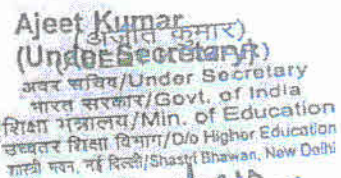 Ajeet Kumar
(अजीत कुमार)
(Under Secretary)
अवर सचिव/Under Secretary
भारत सरकार/Govt. of India
शिक्षा मंत्रालय/Min. of Education
उच्चतर शिक्षा विभाग/D/o Higher Education
शास्त्री भवन, नई दिल्ली/Shastri Bhawan, New Delhi